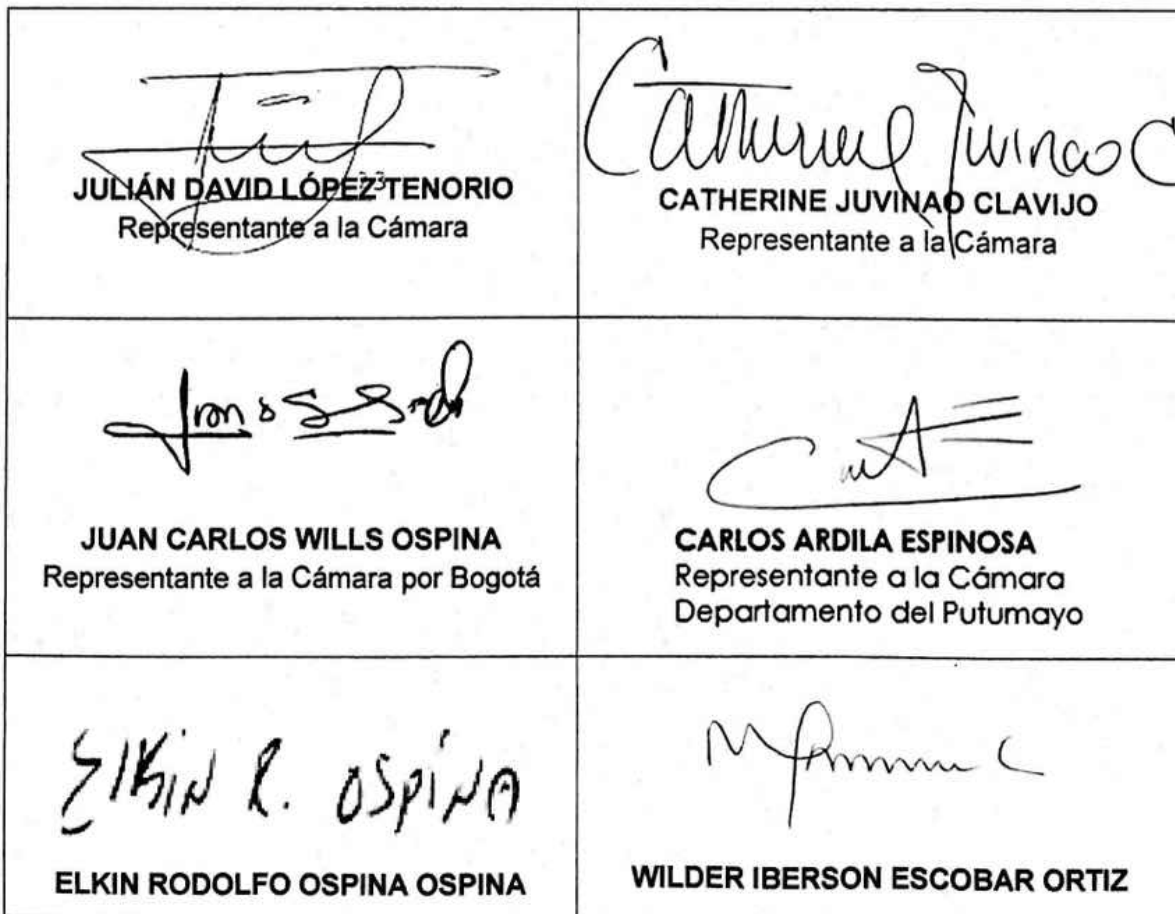 Catherine Juvinao C
JULIÁN DAVID LÓPEZ TENORIO
Representante a la Cámara
CATHERINE JUVINAO CLAVIJO
Representante a la Cámara
JUAN CARLOS WILLS OSPINA
Representante a la Cámara por Bogotá
CARLOS ARDILA ESPINOSA
Representante a la Cámara
Departamento del Putumayo
ElKiN R. OSPiNA
ELKIN RODOLFO OSPINA OSPINA
WILDER IBERSON ESCOBAR ORTIZ